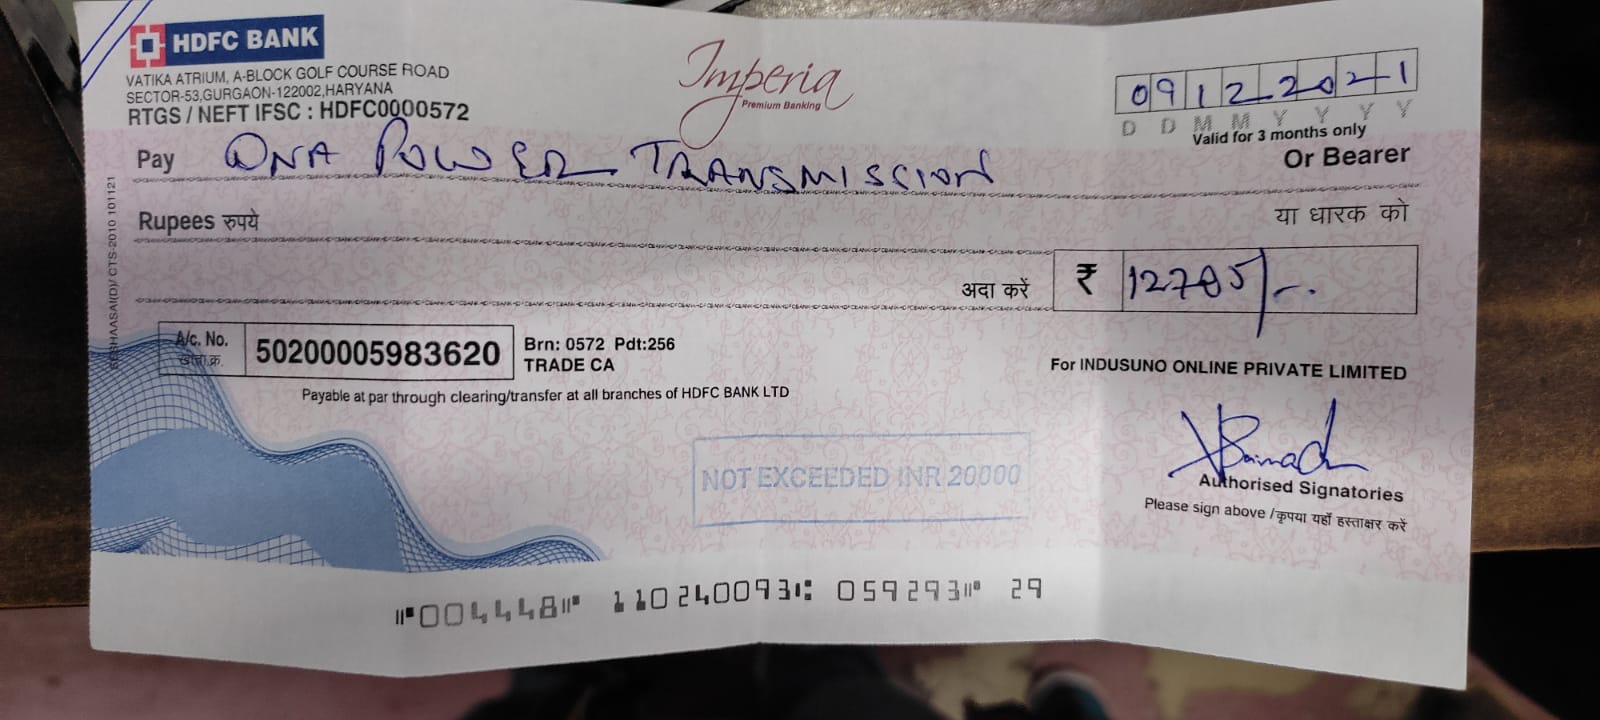 HDFC BANK
VATIKA ATRIUM, A-BLOCK GOLF COURSE ROAD
SECTOR-53,GURGAON-122002,HARYANA
RTGS / NEFT IFSC : HDFC0000572
Imperia
Premium Banking
09122021
D D M M Y Y Y Y
Valid for 3 months only
Pay DNA POWER TRANSMISSION Or Bearer
Rupees रुपये या धारक को
अदा करें ₹ 12785/-
CTS-2010 101121
A/c. No. 50200005983620
खाता क्र.
Brn: 0572 Pdt:256
TRADE CA
Payable at par through clearing/transfer at all branches of HDFC BANK LTD
For INDUSUNO ONLINE PRIVATE LIMITED
NOT EXCEEDED INR 20000
Authorised Signatories
Please sign above /कृपया यहाँ हस्ताक्षर करें
⑈004448⑈ 110240093⑆ 059293⑈ 29